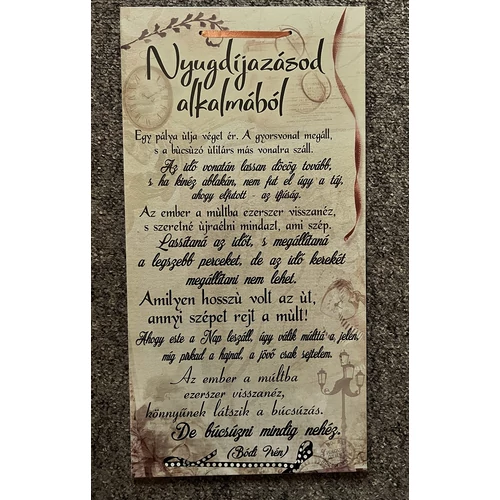 Nyugdíjazásod
alkalmából
Egy pálya ùtja véget ér. A gyorsvonat megáll,
s a bùcsùzó ùtitárs más vonalra száll.
Az idő vonatán lassan döcög tovább,
s ha kinéz ablakán, nem fut el úgy a táj,
ahogy elfutott - az ifjúság.
Az ember a mùltba ezerszer visszanéz,
s szeretné ùjraélni mindazt, ami szép.
Lassítaná az időt, s megállítaná
a legszebb perceket, de az idő kerekét
megállítani nem lehet.
Amilyen hosszù volt az ùt,
annyi szépet rejt a mùlt!
Ahogy este a Nap leszáll, úgy válik múlttá a jelen,
míg pirkad a hajnal, a jövő csak sejtelem.
Az ember a múltba
ezerszer visszanéz,
könnyűnek látszik a búcsúzás.
De búcsúzni mindig nehéz.
(Bódi Irén)